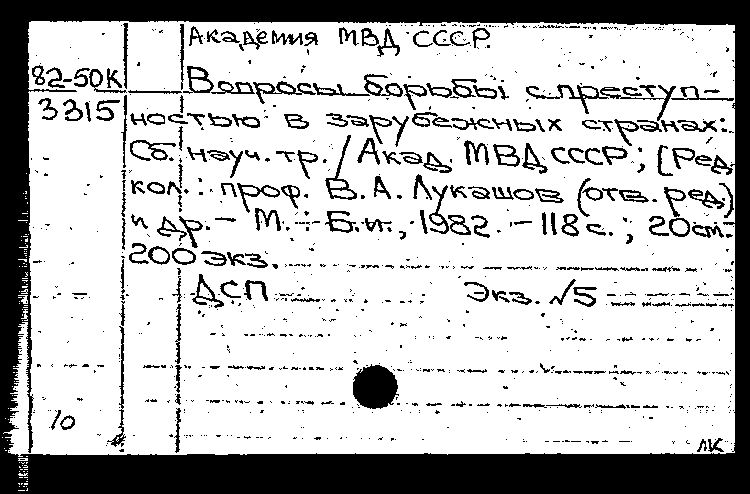 Академия МВД СССР.
82-50К Вопросы борьбы с преступ-
3315 ностью в зарубежных странах:
Сб. науч. тр. / Акад. МВД СССР; [Ред.
кол.: проф. В. А. Лукашов (отв. ред.)
и др. - М.: Б.и., 1982. - 118 с.; 20 см. -
200 экз.
ДСП Экз. √5
10
ЛК